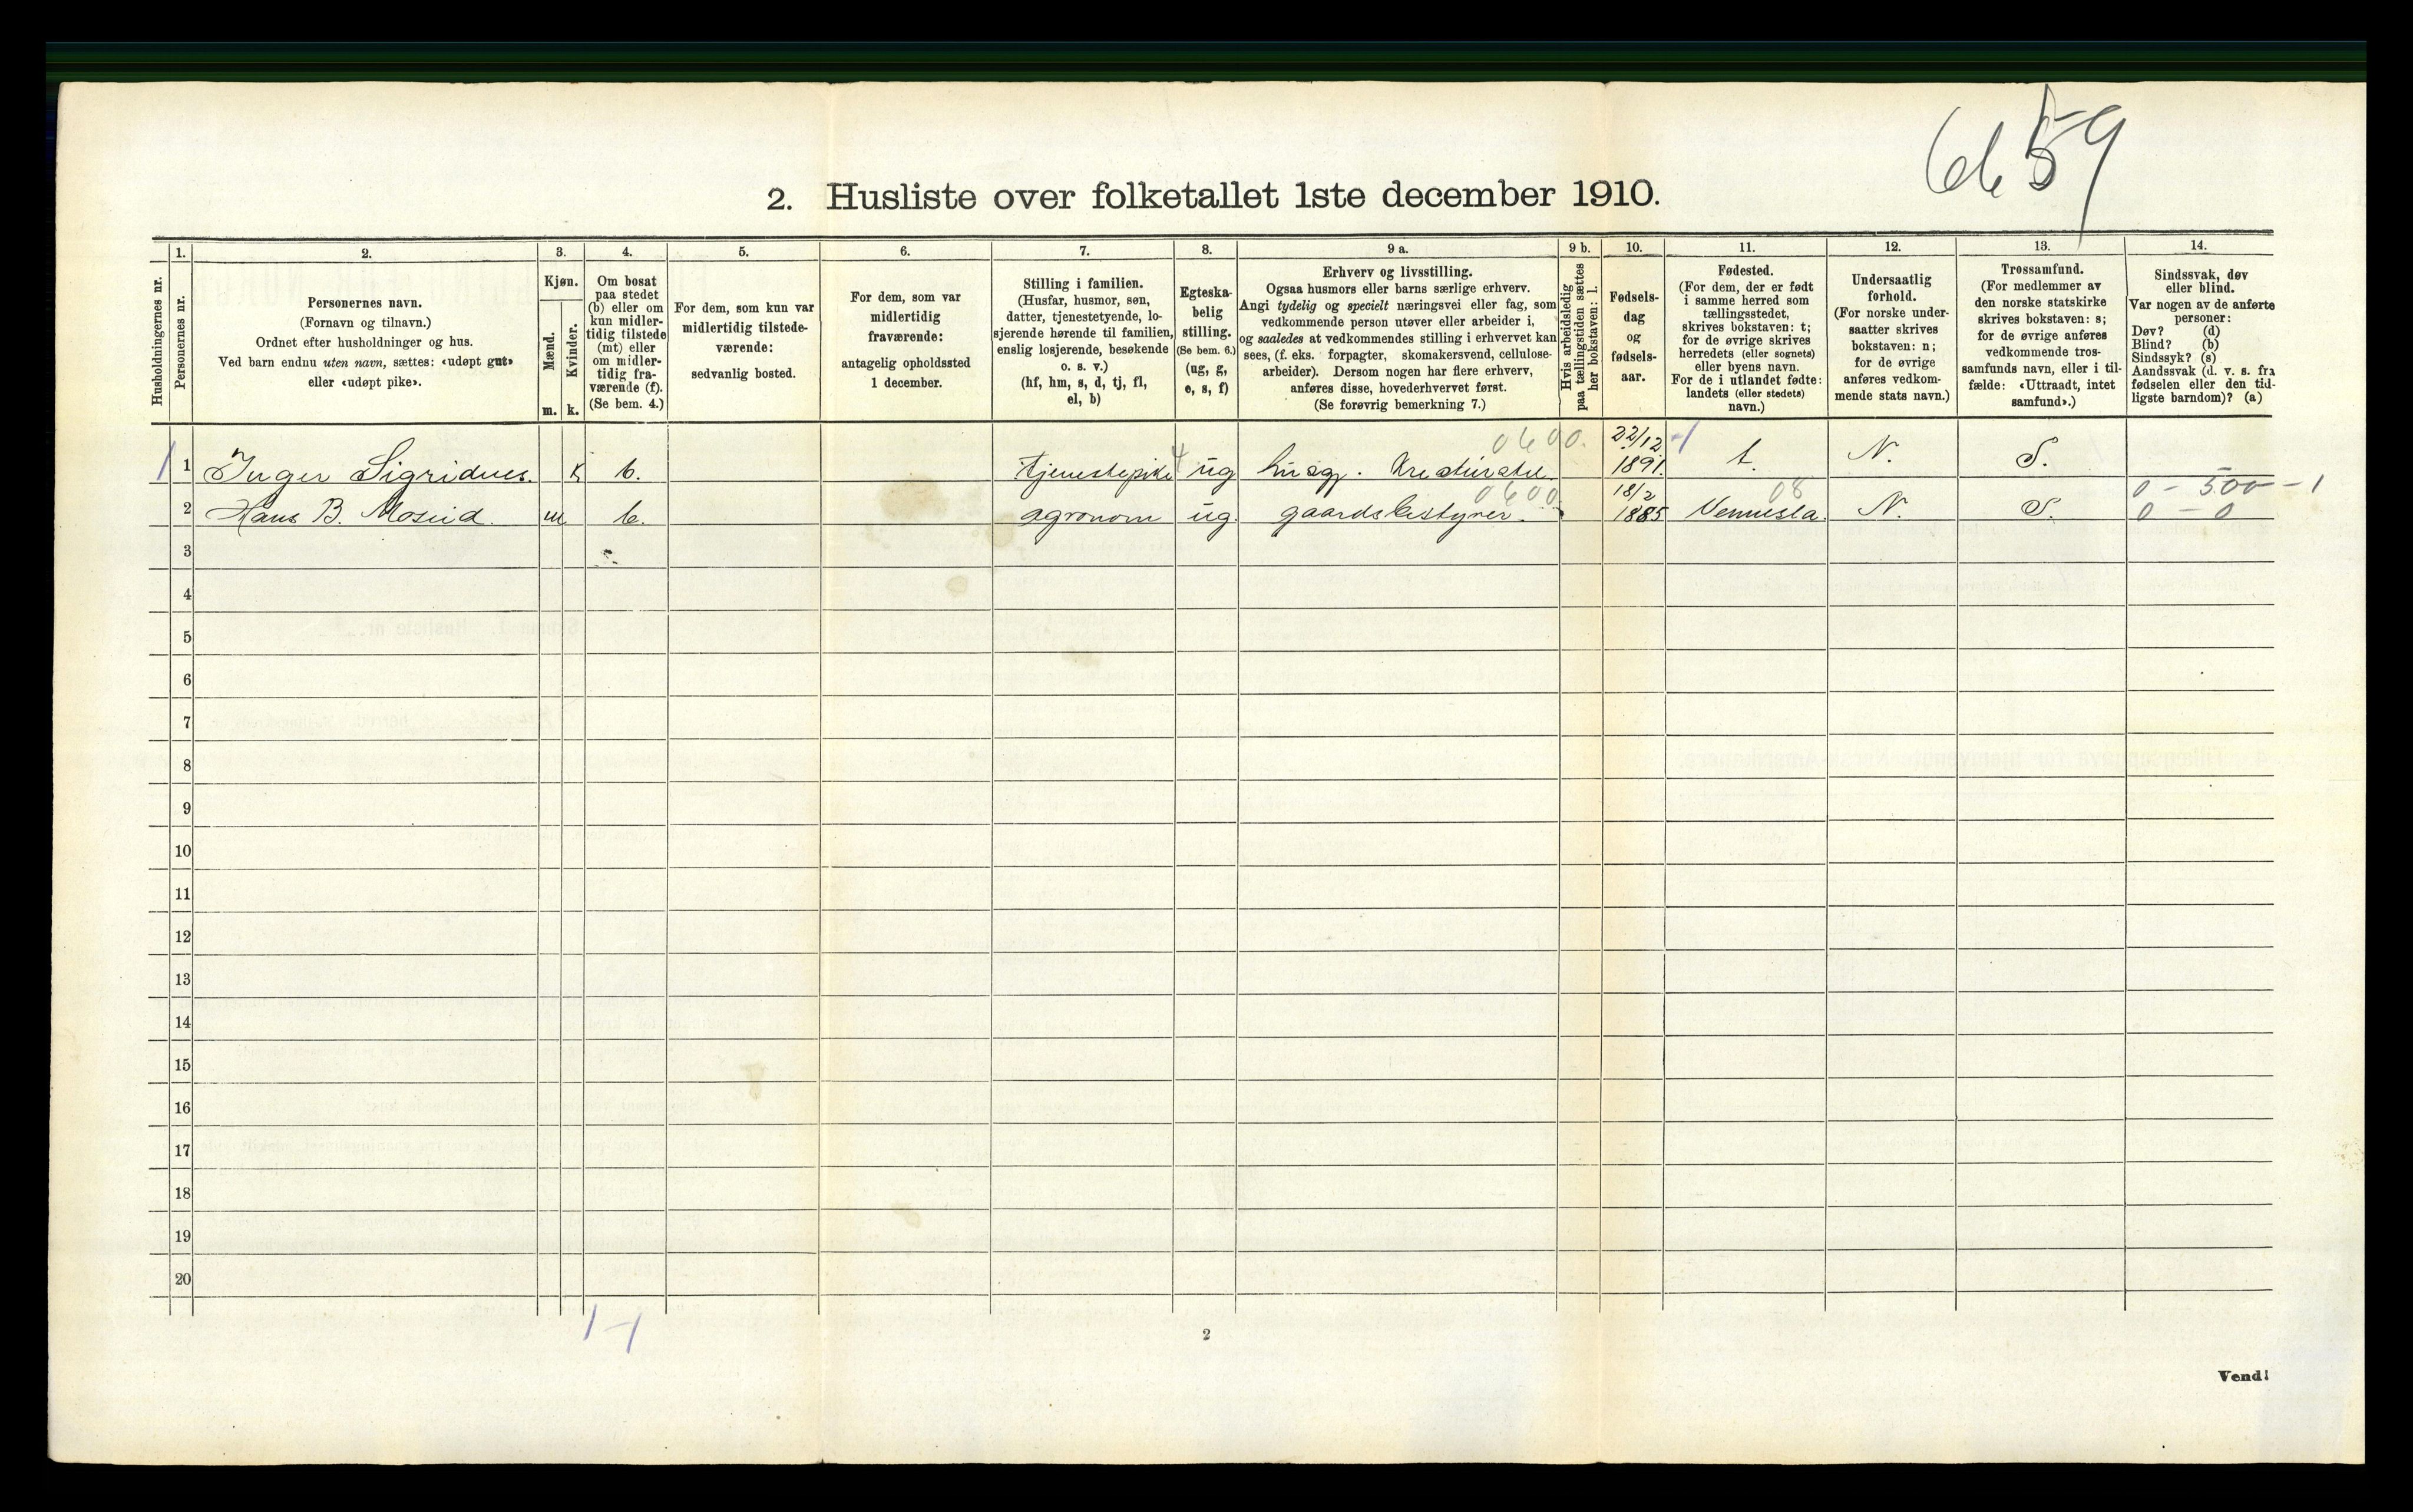 2. Husliste over folketallet 1ste december 1910.
59
Husholdningernes nr.
1.
Personernes nr.
2.
Personernes navn.
(Fornavn og tilnavn.)
Ordnet efter husholdninger og hus.
Ved barn endnu uten navn, sættes: «udøpt gut»
eller «udøpt pike».
3.
Kjøn.
Mænd.
Kvinder.
m. k.
4.
Om bosat
paa stedet
(b) eller om
kun midler-
tidig tilstede
(mt) eller
om midler-
tidig fra-
værende (f).
(Se bem. 4.)
5.
For dem, som kun var
midlertidig tilstede-
værende:
sedvanlig bosted.
6.
For dem, som var
midlertidig
fraværende:
antagelig opholdssted
1 december.
7.
Stilling i familien.
(Husfar, husmor, søn,
datter, tjenestetyende, lo-
sjerende hørende til familien,
enslig losjerende, besøkende
o. s. v.)
(hf, hm, s, d, tj, fl,
el, b)
8.
Egteska-
belig
stilling.
(Se bem. 6.)
(ug, g,
e, s, f)
9 a.
Erhverv og livsstilling.
Ogsaa husmors eller barns særlige erhverv.
Angi tydelig og specielt næringsvei eller fag, som
vedkommende person utøver eller arbeider i,
og saaledes at vedkommendes stilling i erhvervet kan
sees, (f. eks. forpagter, skomakersvend, cellulose-
arbeider). Dersom nogen har flere erhverv,
anføres disse, hovederhvervet først.
(Se forøvrig bemerkning 7.)
9 b.
Hvis arbeidsledig
paa tællingstiden sættes
her bokstaven: l.
10.
Fødsels-
dag
og
fødsels-
aar.
11.
Fødested.
(For dem, der er født
i samme herred som
tællingsstedet,
skrives bokstaven: t;
for de øvrige skrives
herredets (eller sognets)
eller byens navn.
For de i utlandet fødte:
landets (eller stedets)
navn.)
12.
Undersaatlig
forhold.
(For norske under-
saatter skrives
bokstaven: n;
for de øvrige
anføres vedkom-
mende stats navn.)
13.
Trossamfund.
(For medlemmer av
den norske statskirke
skrives bokstaven: s;
for de øvrige anføres
vedkommende tros-
samfunds navn, eller i til-
fælde: «Uttraadt, intet
samfund».)
14.
Sindssvak, døv
eller blind.
Var nogen av de anførte
personer:
Døv? (d)
Blind? (b)
Sindssyk? (s)
Aandssvak (d. v. s. fra
fødselen eller den tid-
ligste barndom)? (a)
0600. 22/12 -1
1 1 Inger Sigridnes. k b. tjenestepike 4 ug husg. Kreaturstel. 1891. t. N. S.
0600 18/2 08 0 - 500 - 1
2 Hans B. Moseid. m b. agronom ug. gaardsbestyrer. 1885 Vennesla. N. S. 0 - 0
3
4
5
6
7
8
9
10
11
12
13
14
15
16
17
18
19
20
1 -1
2
Vend!